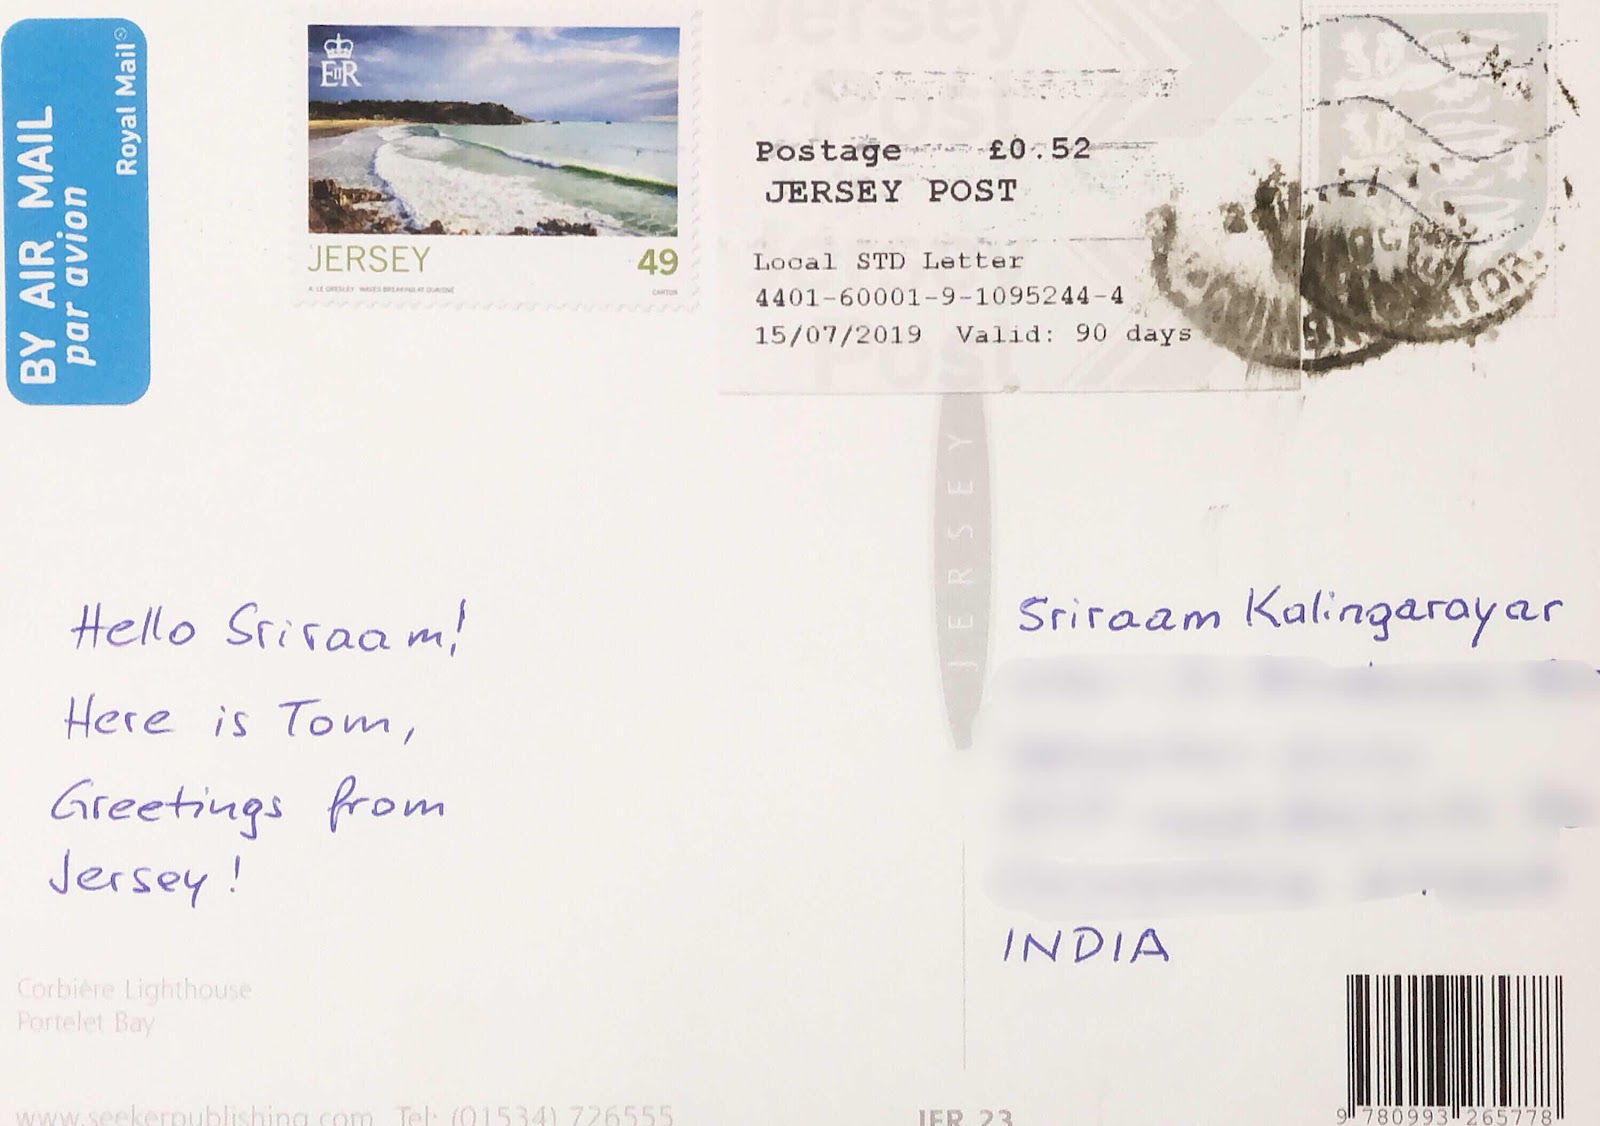 BY AIR MAIL
par avion
Royal Mail®
EIIR
JERSEY 49
A. LE GRESLEY WAVES BREAKING AT OUAISNÉ
CARTOR
Jersey
Post
Postage £0.52
JERSEY POST
Local STD Letter
4401-60001-9-1095244-4
15/07/2019 Valid: 90 days
Post
JERSEY
Hello Sriraam!
Here is Tom,
Greetings from
Jersey!
Sriraam Kalingarayar
INDIA
Corbière Lighthouse
Portelet Bay
www.seekerpublishing.com Tel: (01534) 726555
JER 23
9 780993 265778